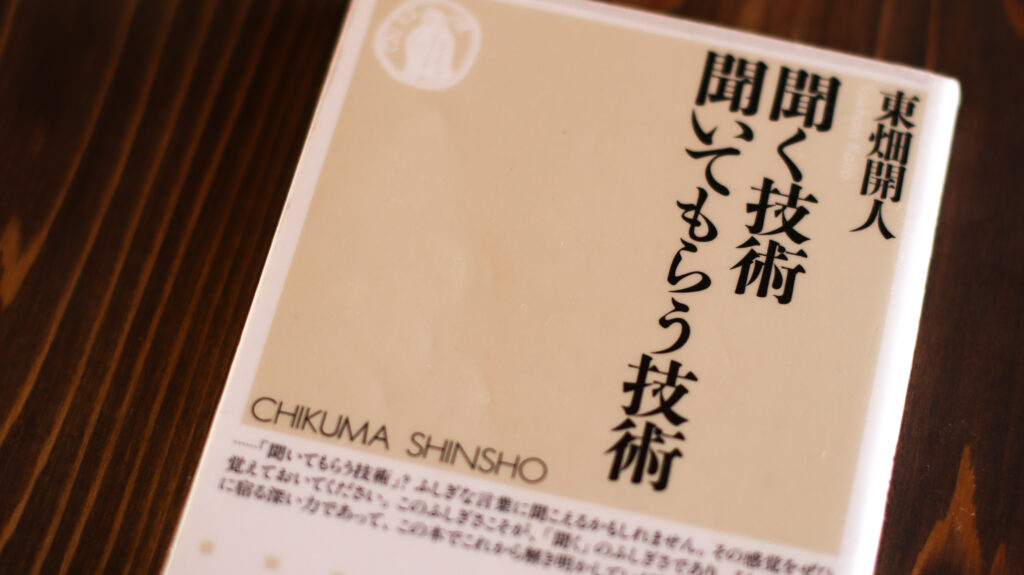 東畑開人
聞く技術
聞いてもらう技術
CHIKUMA SHINSHO
……「聞いてもらう技術」？ ふしぎな言葉に聞こえるかもしれません。その感覚をぜひ
覚えておいてください。このふしぎさこそが、「聞く」のふしぎさであり、
に宿る深い力であって、この本でこれから解き明かしてい